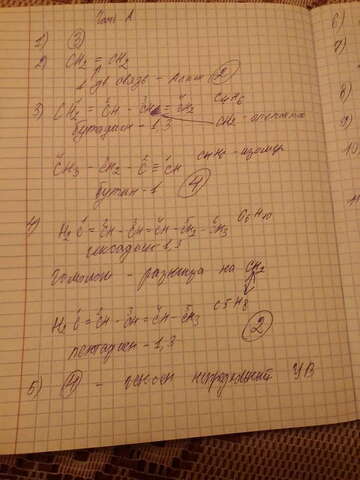 Часть А
1) 3
2) CH2 = CH2
1 дв связь - Алкин 2
3) CH2 = CH - CH = CH2 C4H6
бутадиен - 1,3 CH2 -
CH3 - CH2 - C ≡ CH C4H6 - изомер
бутин - 1 4
4) H2C = CH - CH = CH - CH2 - CH3 C6H10
гексадиен 1,3
гомологи - разница на CH2
H2C = CH - CH = CH - CH3 C5H8
пентадиен - 1,3 2
5) 4 - непредельный УВ
6)
7)
8)
9)
10